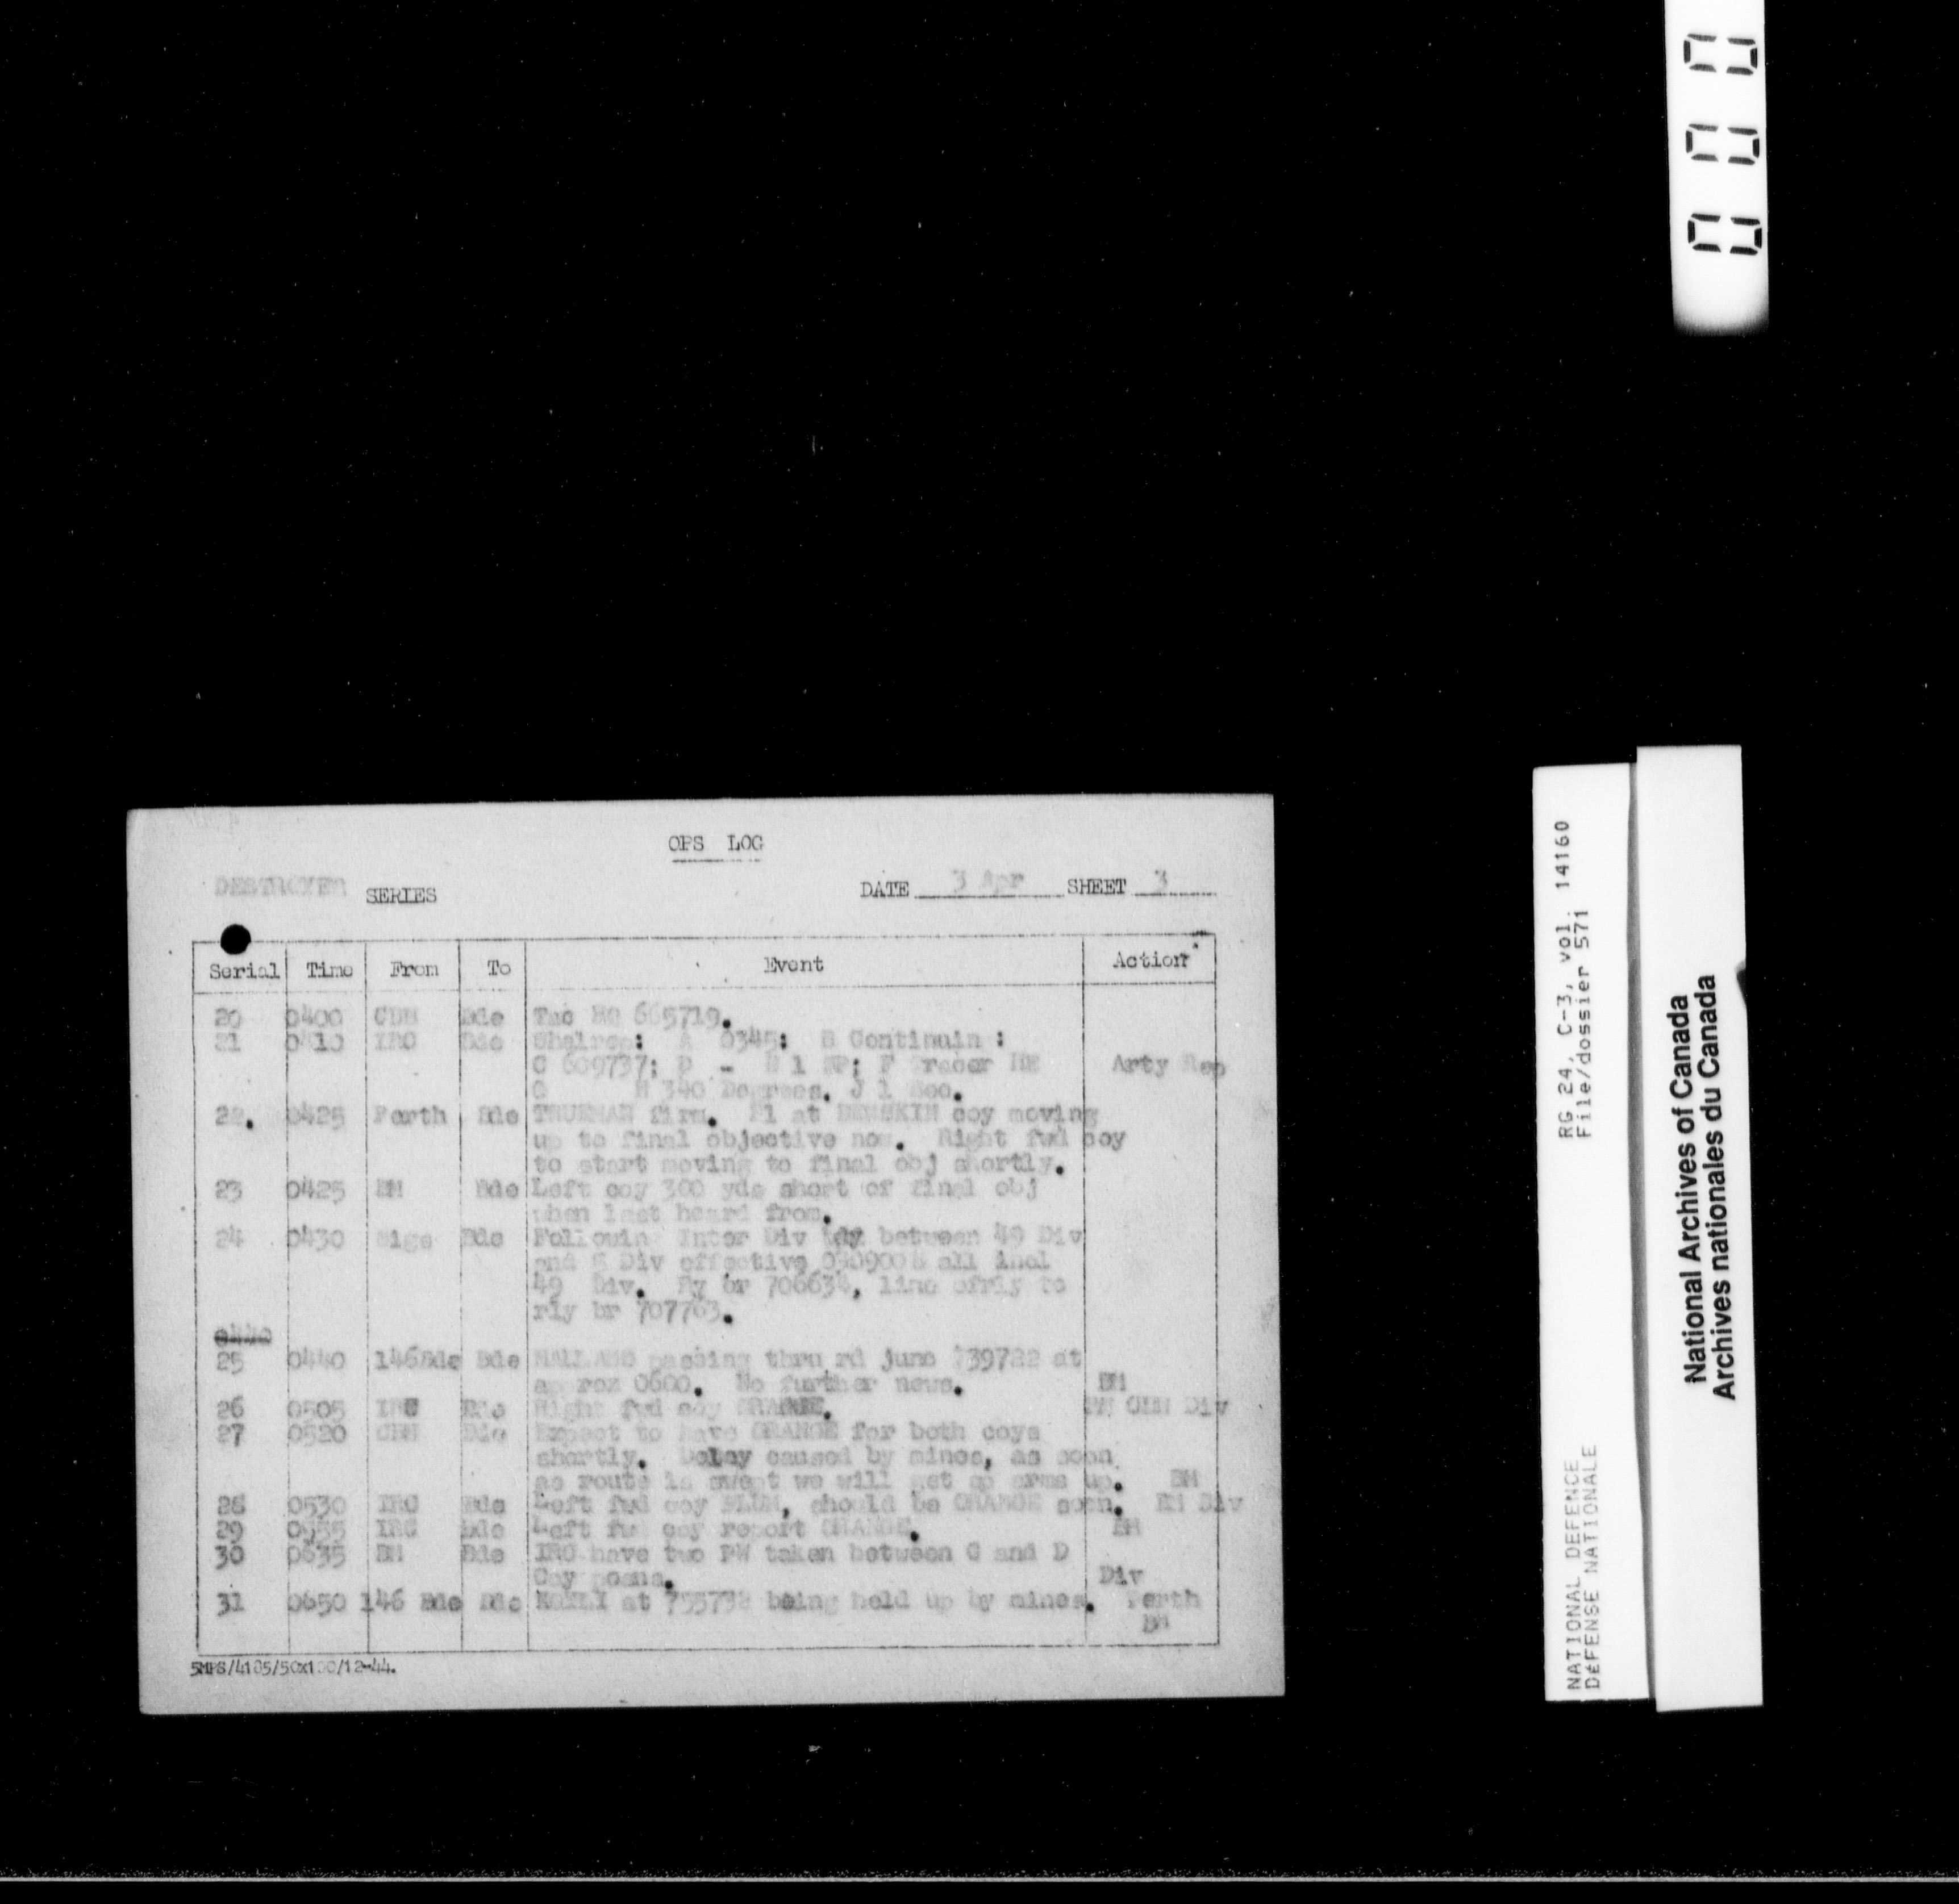 OPS LOG
DESTROYER SERIES DATE 3 Apr SHEET 3
Serial Time From To Event Action
20 0400 CBH Bde Tac HQ 665719.
21 0410 IRC Bde Shelrep: A 0345: B Continuin :
C 609737; D - E 1 F Tracer HE Arty Rep
G H 340 Degrees. J 1 Sec.
22. 0425 Perth Bde TRUEMAN firm. at coy moving
up to final objective now. Right fwd coy
to start moving to final obj shortly.
23 0425 BM Bde Left coy 300 yds short of final obj
when last heard from.
24 0430 Sigs Bde Following Inter Div bdy between 49 Div
and 5 Div effective 030900B all incl
49 Div. Ry br 706634, line of rly to
rly br 707763.
0440
25 0440 146Bde Bde passing thru rd junc 739722 at
approx 0600. No further news. BM
26 0505 IRC Bde Right fwd coy ORANGE. Div
27 0520 CBH Bde Expect to have ORANGE for both coys
shortly. Delay caused by mines, as soon
as route is swept we will get sp arms up. BM
28 0530 IRC Bde Left fwd coy PLUM, should be ORANGE soon. BM Div
29 0535 IRC Bde Left fwd coy report ORANGE. BM
30 0635 BM Bde IRC have two PW taken between C and D
Coy posns. Div
31 0650 146 Bde Bde at 755732 being held up by mines. Perth
BM
5MPS/4185/50x100/12-44.
RG 24, C-3, vol. 14160
File/dossier 571
NATIONAL DEFENCE
DÉFENSE NATIONALE
National Archives of Canada
Archives nationales du Canada